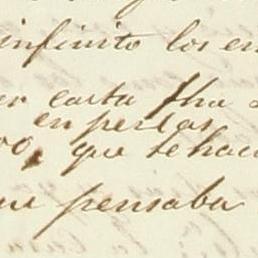 infinito los en
er carta fha
en perlas
00, que se hac
ue pensaba